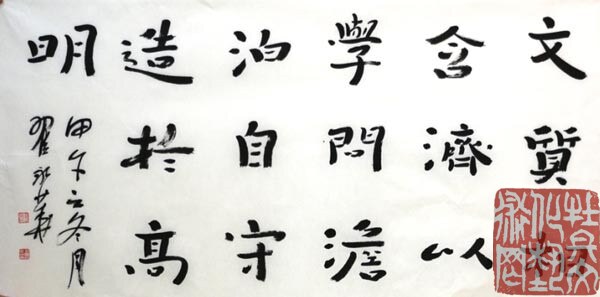 文質相
含濟以
學問澹
泊自守
造於高
明
甲午之冬月
翟永華